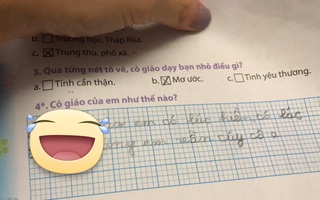 b. Trường học, Tháp Rùa.
c. Trung thu, phố xá.
3. Qua từng nét tô vẽ, cô giáo dạy bạn nhỏ điều gì?
a. Tính cẩn thận. b. Mơ ước. c. Tình yêu thương.
4*. Cô giáo của em như thế nào?
em có lúc hiền có lúc
em vẫn